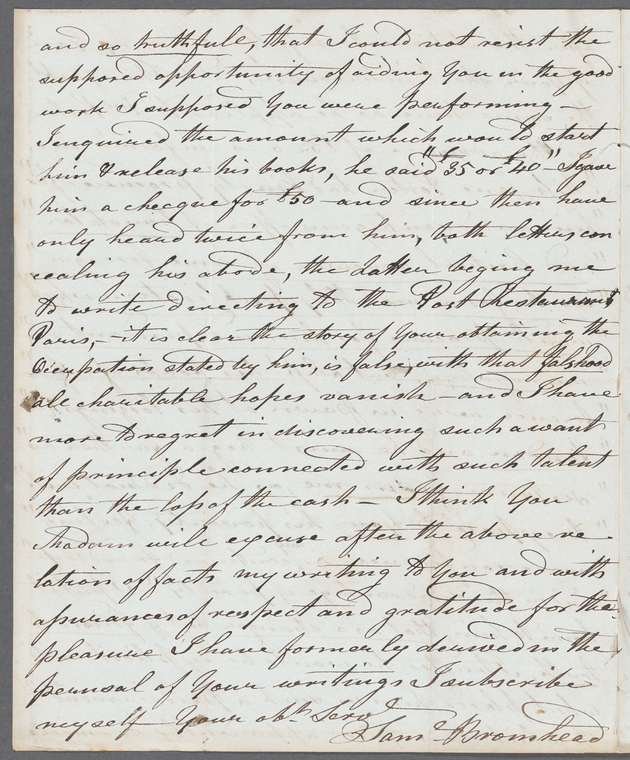 and so truthfull, that I could not resist the
supposed opportunity of aiding You in the good
work I supposed You were performing –
I enquired the amount which would start
him & release his books, he said "£35 or £40" I gave
him a checque for £50 – and since then have
only heard twice from him, both letters con
cealing his abode, the latter beging me
to write directing to the Post Restaurant
Paris, – it is clear the story of Your obtaining the
Occupation stated by him, is false, with that falshood
all charitable hopes vanish – and I have
more to regret in discovering such a want
of principle connected with such talent
than the loss of the cash – I think You
Madam will excuse after the above re
lation of facts my writing to You and with
assurances of respect and gratitude for the
pleasure I have formerly derived in the
perusal of Your writings I subscribe
myself Your obt Servt
Saml Bromhead